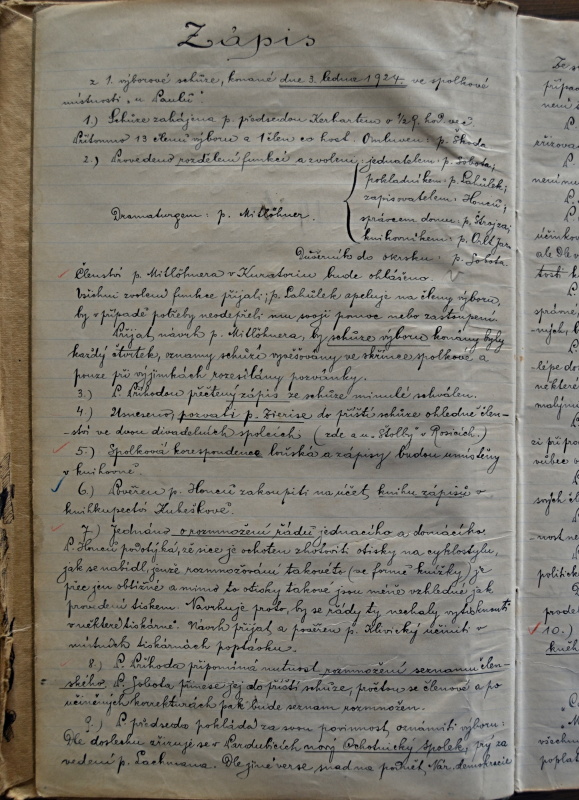 Zápis
z 1. výborové schůze, konané dne 3. ledna 1924 ve spolkové
místnosti „u Paulů".
1.) Schůze zahájena p. předsedou Kerhartem o ½9. hod. več.
Přítomno 13 členů výboru a 1 člen co host. Omluven: p. Škoda
2.) Provedeno rozdělení funkcí a zvolen: jednatelem: p. Sobota;
pokladníkem: p. Lahůlek;
zapisovatelem: Honců;
Dramaturgem: p. Mitlöhner.
správcem domu: p.
knihovníkem: p.
Důvěrník do okrsku: p. Sobota
Členství p. Mitlöhnera v Kuratoriu bude ohlášeno.
Všichni zvolení funkce přijali; p. Lahůlek apeluje na členy výboru,
by v případě potřeby neodepřeli mu svoji pomoc nebo zastoupení.
Přijat návrh p. Mitlöhnera, by schůze výboru konány byly
každý čtvrtek, oznamy schůzí vyvěšovány ve skřínce spolkové a
pouze při výjimkách rozesílány pozvánky.
3.) P. Příhodou přečtený zápis ze schůze minulé schválen.
4.) Usneseno pozvati p. Zierise do příští schůze ohledně člen-
ství ve dvou divadelních spolcích (zde a u „Štolby" v Rosicích.)
5.) Spolková korespondence loňská a zápisy budou umístěny
v knihovně.
6.) Pověřen p. Honců zakoupiti na účet knihu zápisů v
knihkupectví Hubeškově.
7.) Jednáno o rozmnožení řádů jednacího a domácího.
P. Honců podotýká, že sice je ochoten zhotoviti otisky na cyklostylu,
jak se nabídl, jenže rozmnožování takovéto (ve formě knížky) je
přec jen obtížné a mimo to otisky takové jsou méně vzhledné jak
provedení tiskem. Navrhuje proto, by se řády ty, nechaly vytisknout
v některé tiskárně. Návrh přijat a pověřen p. Klvický učiniti v
místních tiskárnách poptávku.
8.) P. Příhoda připomíná nutnost rozmnožení seznamu člen-
ského. P. Sobota přinese jej do příští schůze, přečtou se členové a po
učiněných korrekturách pak bude seznam rozmnožen.
9.) P. předseda pokládá za svou povinnost oznámiti výboru:
Dle doslechu zřizuje se v Pardubicích nový Ochotnický spolek, prý za
vedení p. Lachmana. Dle jiné verse, snad na podnět Nár. demokracie